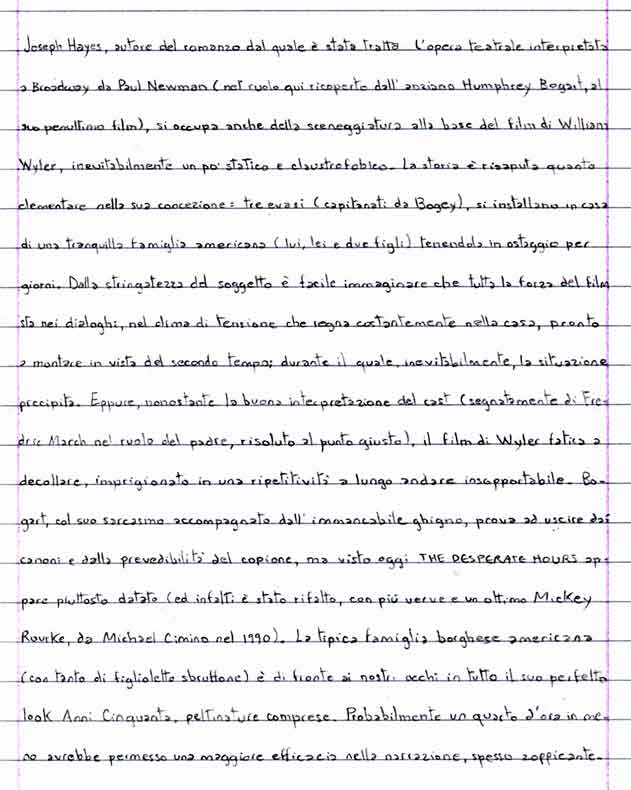 Joseph Hayes, autore del romanzo dal quale è stata tratta l'opera teatrale interpretata
a Broadway da Paul Newman (nel ruolo qui ricoperto dall'anziano Humphrey Bogart, al
suo penultimo film), si occupa anche della sceneggiatura alla base del film di William
Wyler, inevitabilmente un po' statico e claustrofobico. La storia è risaputa quanto
elementare nella sua concezione: tre evasi (capitanati da Bogey), si installano in casa
di una tranquilla famiglia americana (lui, lei e due figli) tenendola in ostaggio per
giorni. Dalla stringatezza del soggetto è facile immaginare che tutta la forza del film
sta nei dialoghi, nel clima di tensione che regna costantemente nella casa, pronto
a montare in vista del secondo tempo; durante il quale, inevitabilmente, la situazione
precipita. Eppure, nonostante la buona interpretazione del cast (segnatamente di Fre-
dric March nel ruolo del padre, risoluto al punto giusto), il film di Wyler fatica a
decollare, imprigionato in una ripetitività a lungo andare insopportabile. Bo-
gart, col suo sarcasmo accompagnato dall'immancabile ghigno, prova ad uscire dai
canoni e dalla prevedibilità del copione, ma visto oggi THE DESPERATE HOURS ap-
pare piuttosto datato (ed infatti è stato rifatto, con più verve e un ottimo Mickey
Rourke, da Michael Cimino nel 1990). La tipica famiglia borghese americana
(con tanto di figlioletto sbruffone) è di fronte ai nostri occhi in tutto il suo perfetto
look Anni Cinquanta, pettinature comprese. Probabilmente un quarto d'ora in me-
no avrebbe permesso una maggiore efficacia nella narrazione, spesso zoppicante.